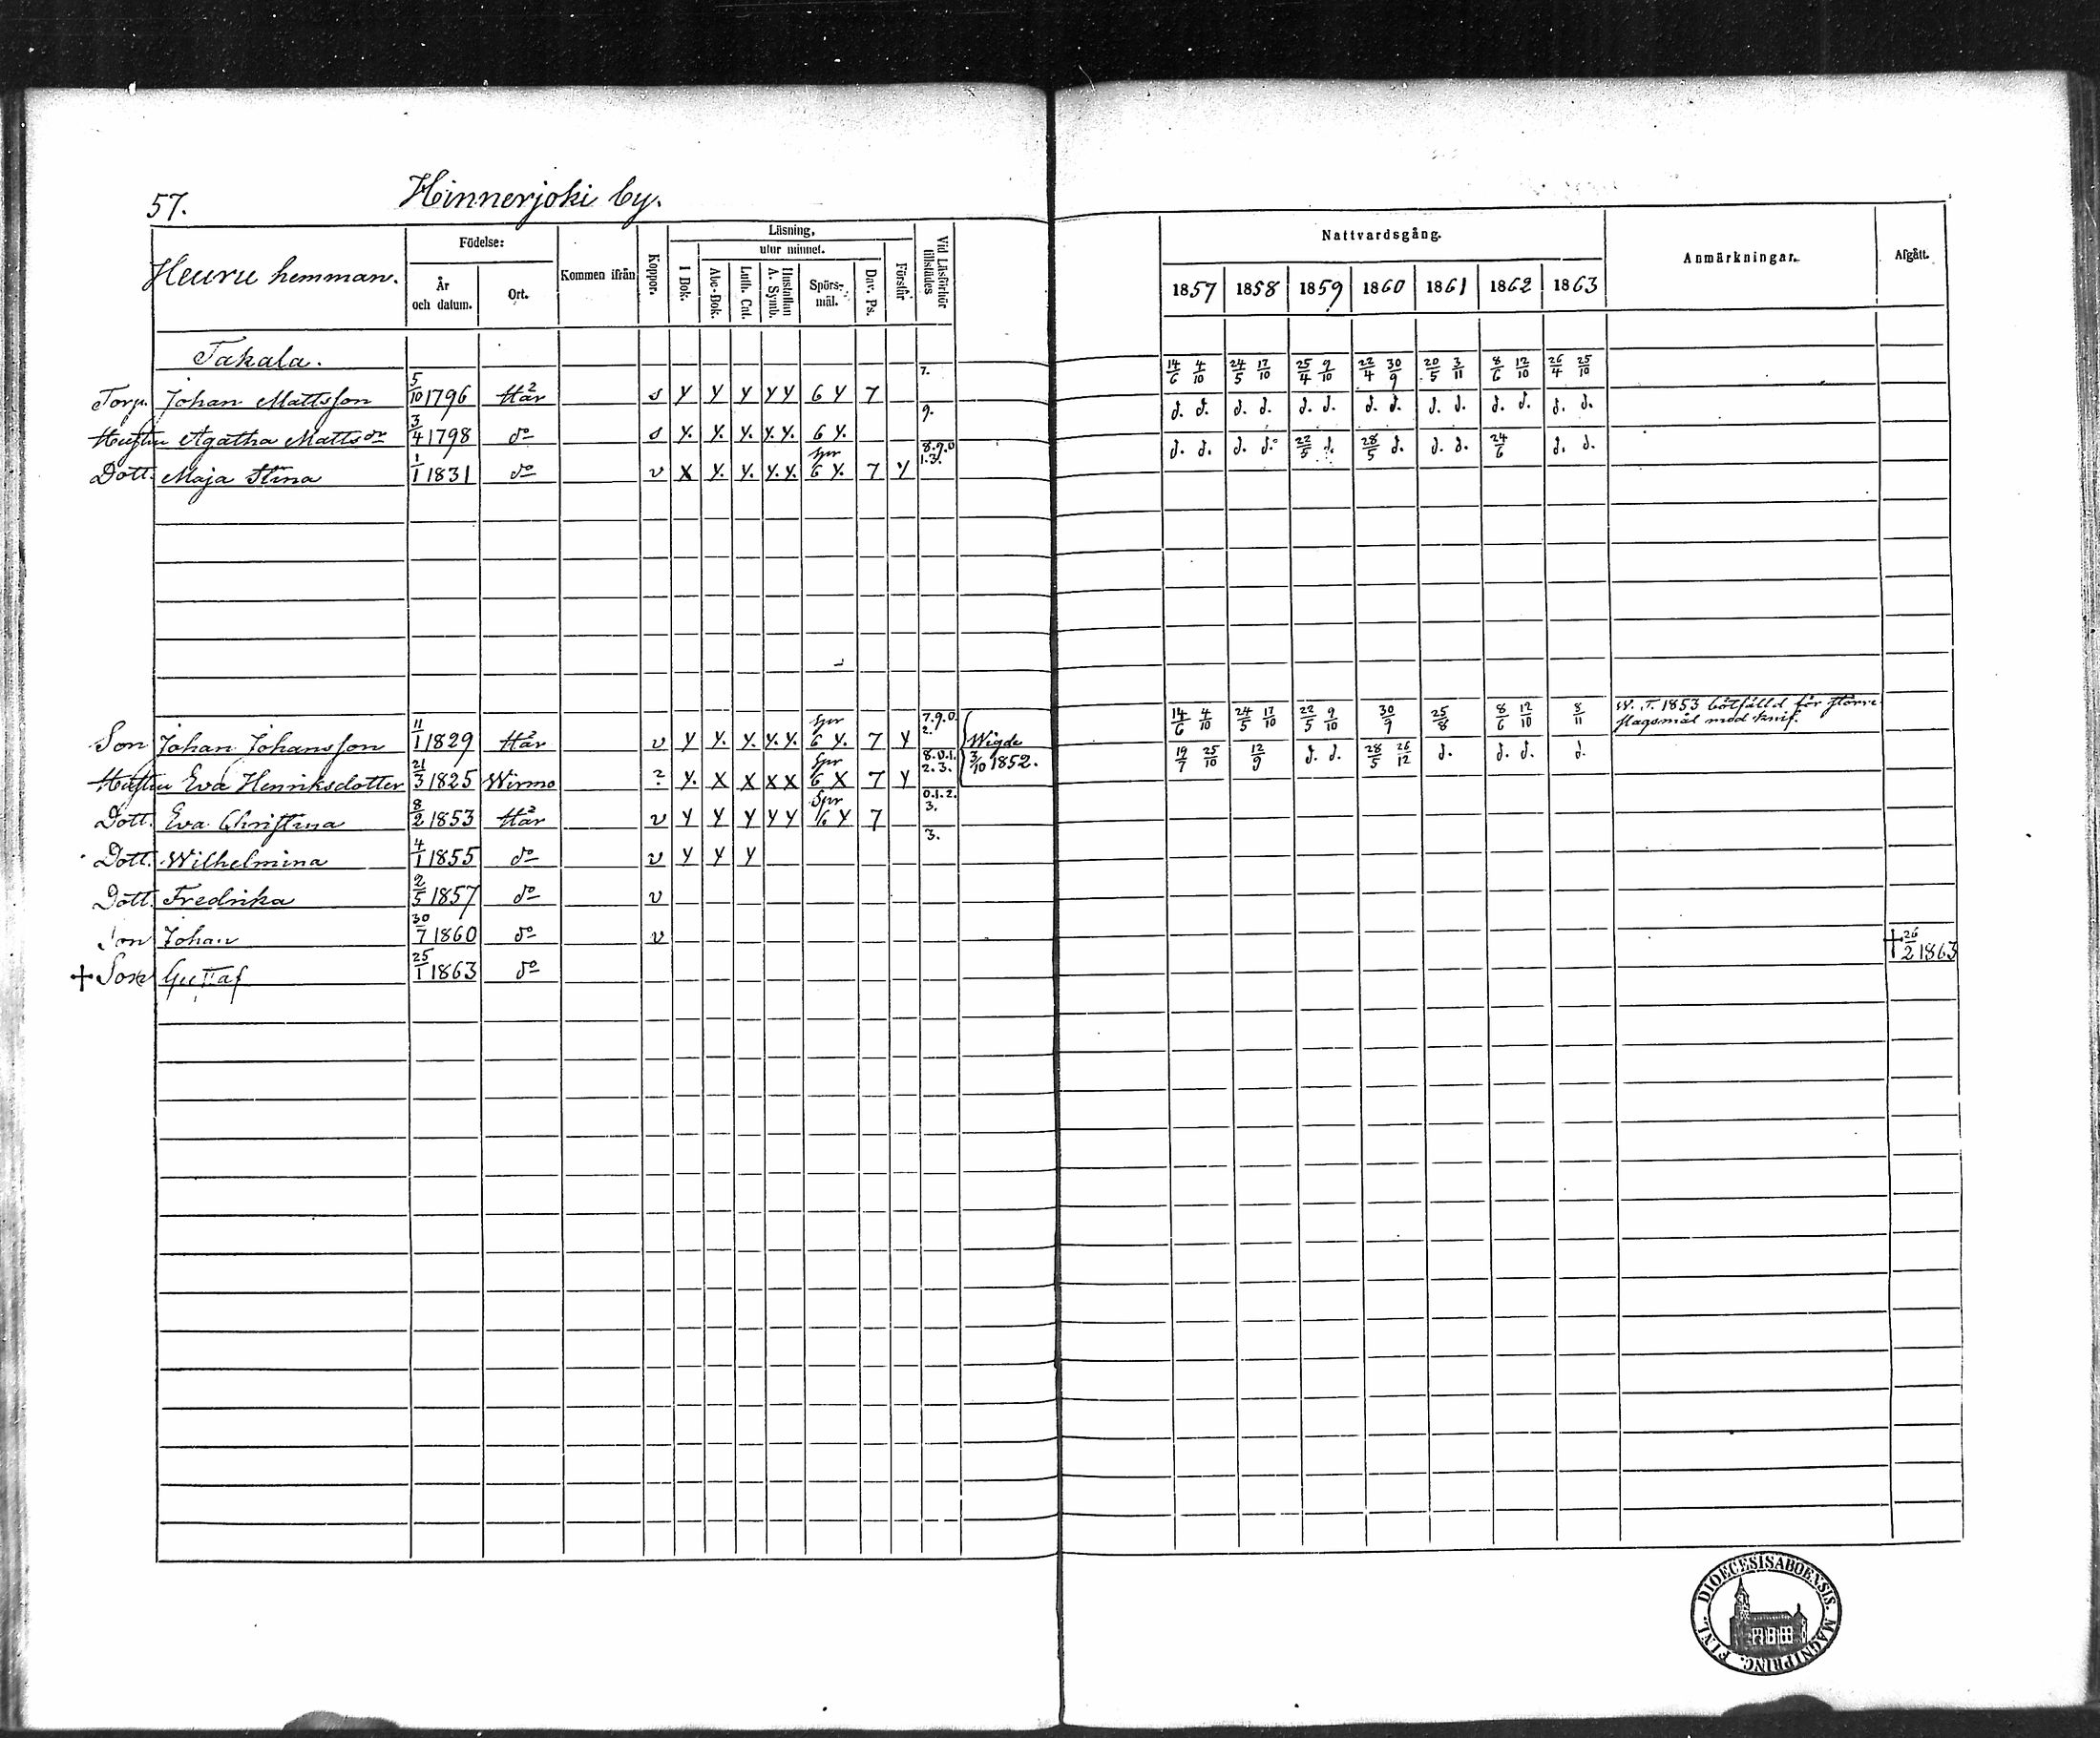 57. Hinnerjoki by.
Heuru hemman. Födelse: År och datum. Ort. Kommen ifrån Koppor. Läsning, I Bok. utur minnet. Abc-Bok. Luth. Cat. Hustaflan A. Symb. Spörs-mål. Dav. Ps. Förstår Vid Läsförhör tillstädes
Nattvardsgång. Anmärkningar. Afgått.
1857 1858 1859 1860 1861 1862 1863
Takala.
Torp. Johan Mattsson 5/10 1796 Här s y y y y y 6 y 7 7. 14/6 4/10 24/5 17/10 25/4 9/10 22/4 30/9 20/5 3/11 8/6 12/10 26/4 25/10
Hustru Agatha Mattsdr 3/4 1798 do s y. y. y. y. y. 6 y. 9. d. d. d. d. d. d. d. d. d. d. d. d. d. d.
Dott. Maja Stina 1/1 1831 do v x y. y. y. y. spr 6 y. 7 y 8.9.0 1.3. d. d. d. d. 22/5 d. 28/5 d. d. d. 24/6 d. d.
Son Johan Johansson 11/1 1829 Här v y y. y. y. y. spr 6 y. 7 y 7.9.0. 2. Wigde 14/6 4/10 24/5 17/10 22/5 9/10 30/9 25/8 8/6 12/10 8/11 W. T. 1853 bötfälld för större slagsmål med knif.
Hustru Eva Henriksdotter 21/3 1825 Wirmo ? y. x x x x spr 6 x 7 y 8.0.1. 2.3. 3/10 1852. 19/7 25/10 12/9 d. d. 28/5 26/12 d. d. d. d.
Dott. Eva Christina 8/2 1853 Här v y y y y y Spr 1/6 y 7 0.1.2. 3.
Dott. Wilhelmina 4/1 1855 do v y y y 3.
Dott. Fredrika 2/5 1857 do v
Son Johan 30/7 1860 do v
+ Son Gustaf 25/1 1863 do + 26/2 1863
DIOECESIS ABOENSIS. MAGNI PRINC. FINL.